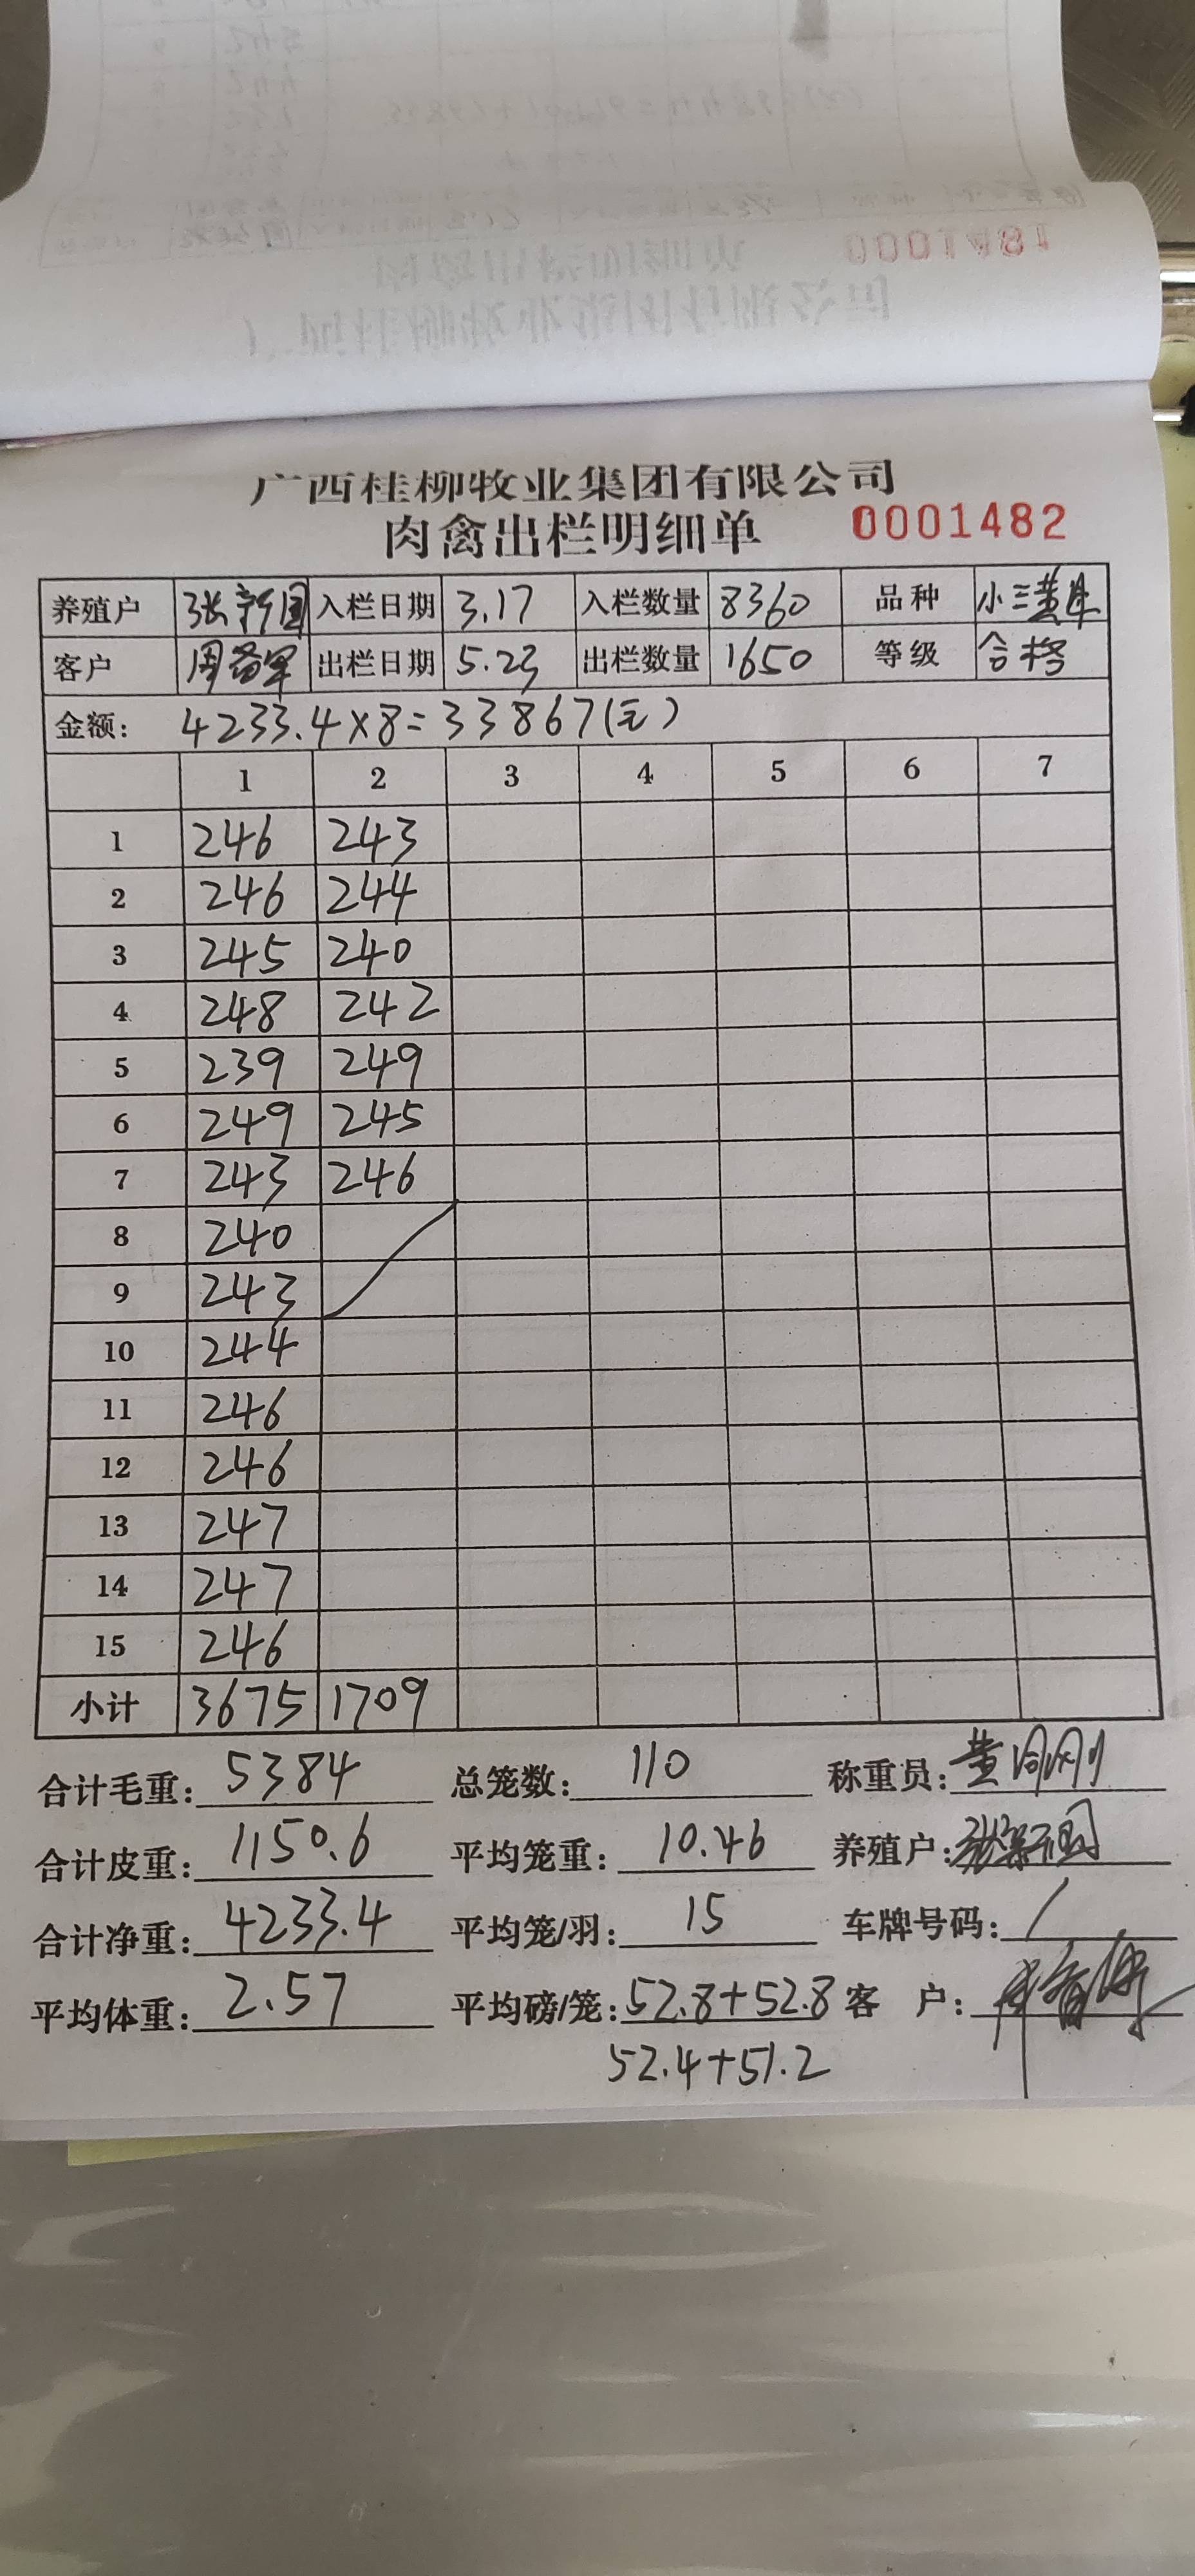 0001481
广西桂柳牧业集团有限公司
肉禽出栏明细单 0001482
养殖户 张新国 入栏日期 3.17 入栏数量 8360 品种 小三黄
客户 周 出栏日期 5.23 出栏数量 1650 等级 合格
金额: 4233.4×8=33867(元)
1 2 3 4 5 6 7
1 246 243
2 246 244
3 245 240
4 248 242
5 239 249
6 249 245
7 243 246
8 240
9 243
10 244
11 246
12 246
13 247
14 247
15 246
小计 3675 1709
合计毛重: 5384 总笼数: 110 称重员: 黄
合计皮重: 1150.6 平均笼重: 10.46 养殖户:
合计净重: 4233.4 平均笼/羽: 15 车牌号码: /
平均体重: 2.57 平均磅/笼: 52.8+52.8 客 户:
52.4+51.2